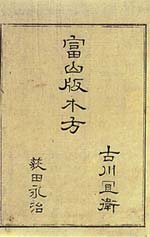 古川宜衛
富山版木方
荻田永治